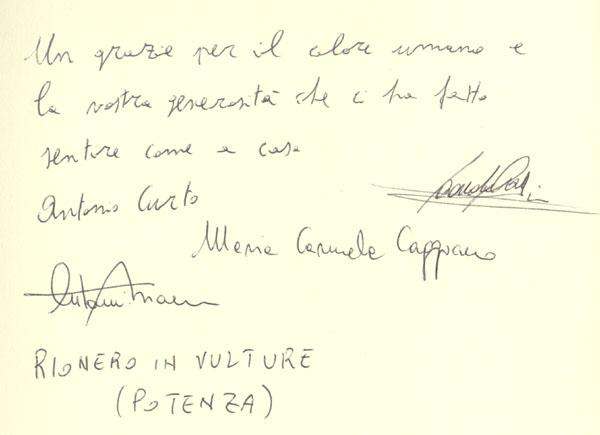 Un grazie per il calore umano e
la vostra generosità che ci ha fatto
sentire come a casa
Antonio Curto
Maria Carmela Cappiano
RIONERO IN VULTURE
(POTENZA)